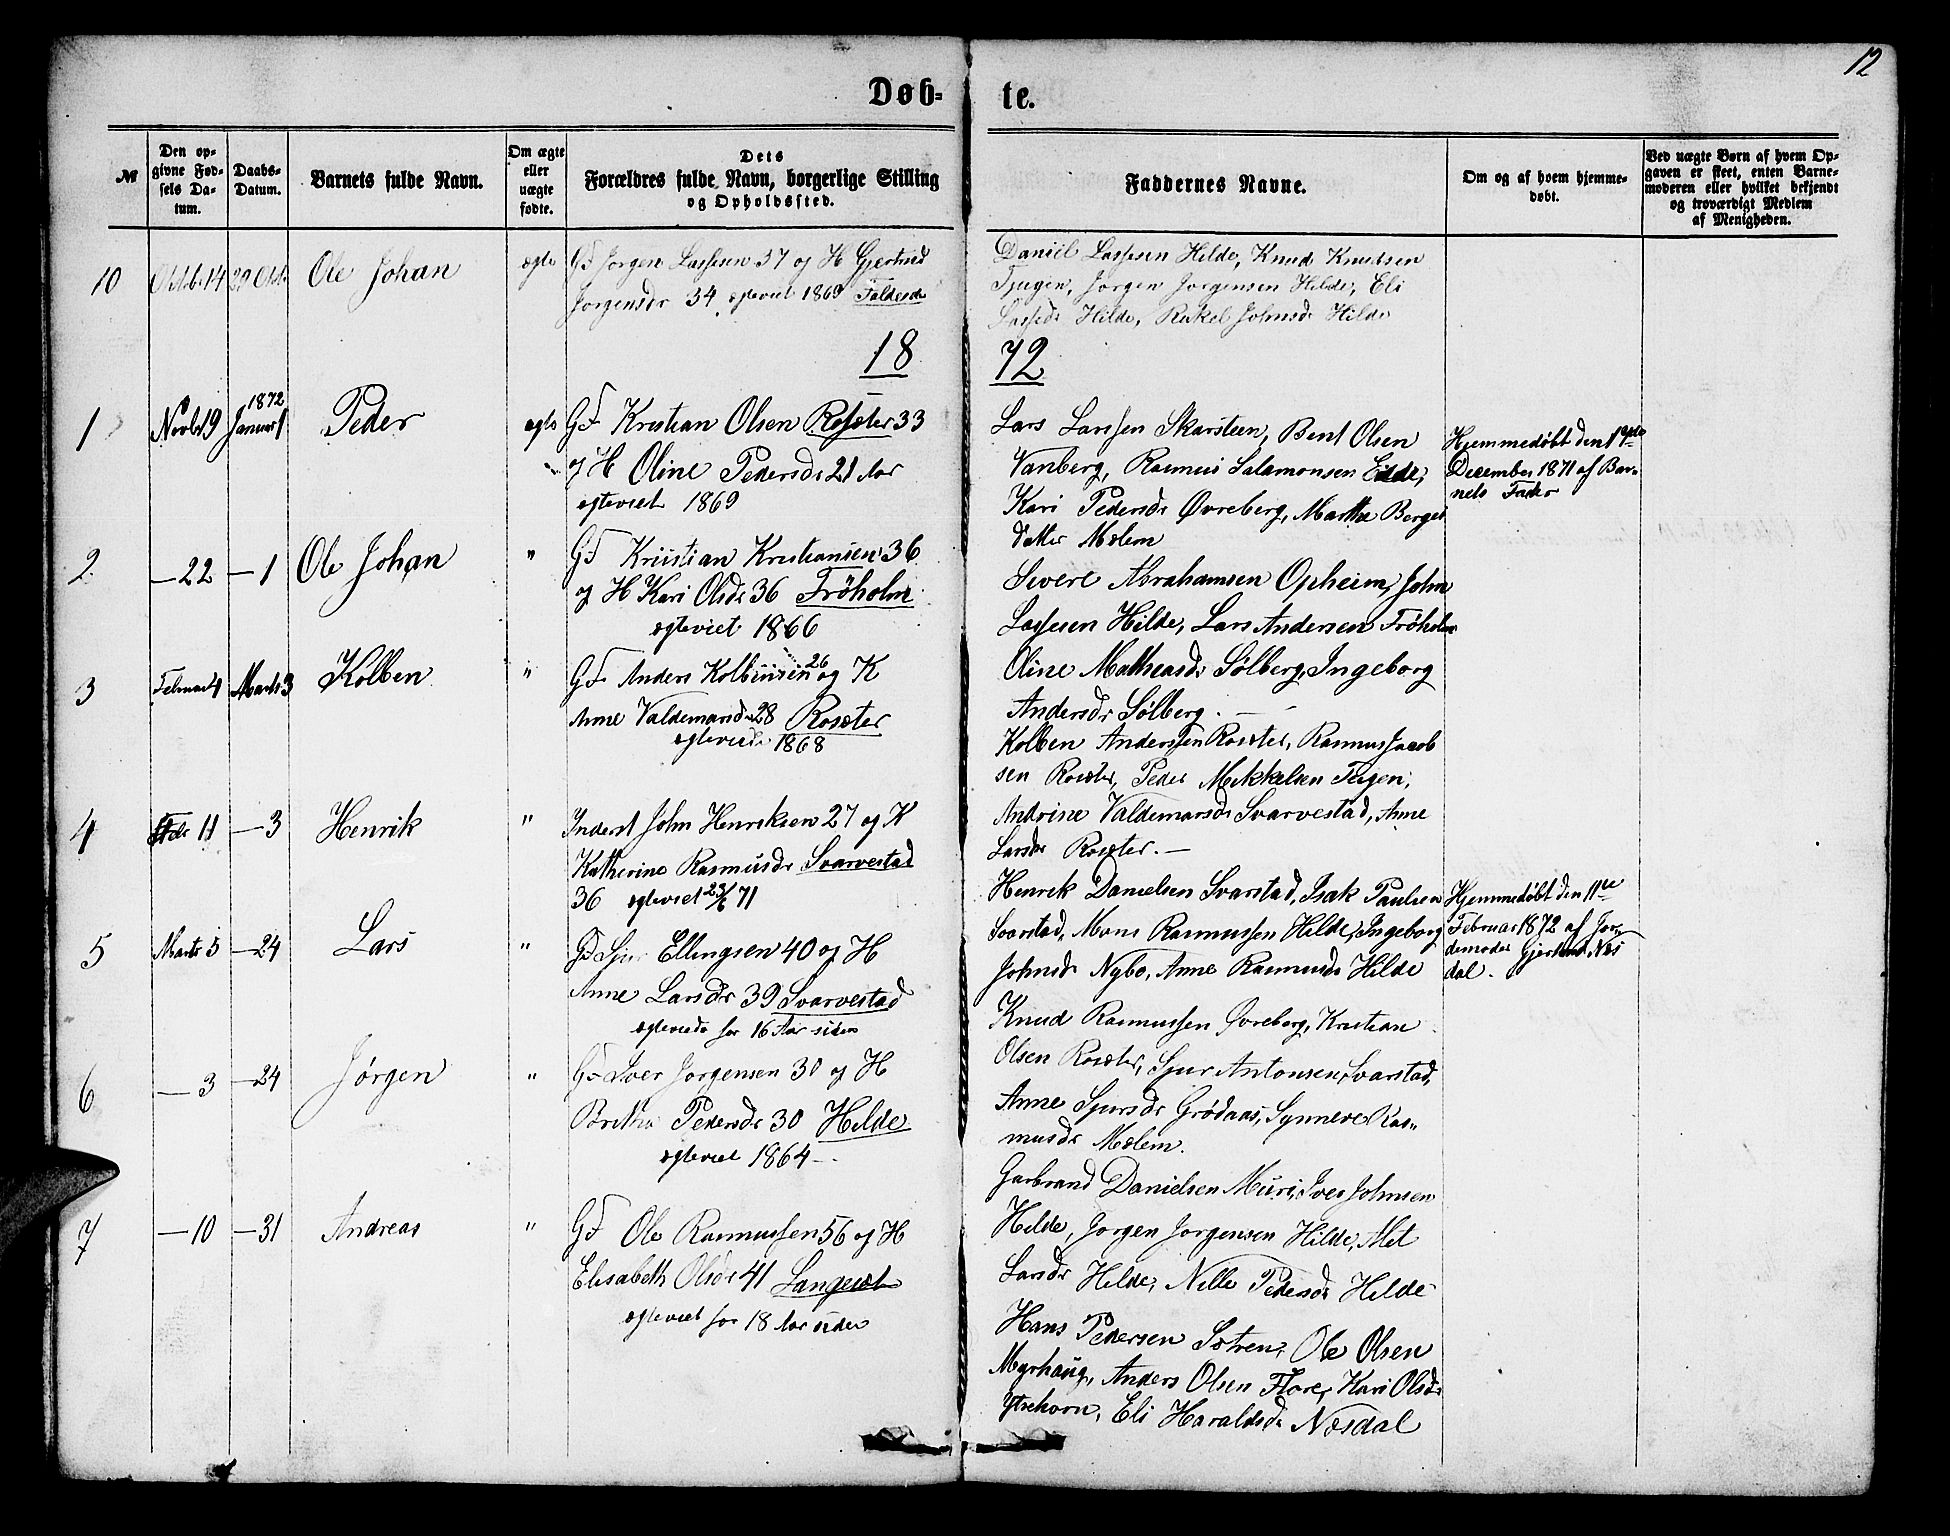 12
Døb- te.
№
Den opgivne Fødsels Datum.
Daabs-Datum.
Barnets fulde Navn.
Om ægte eller uægte fødte.
Dets Forældres fulde Navn, borgerlige Stilling og Opholdssted.
Faddernes Navne.
Om og af hvem hjemmedøbt.
Ved uægte Børn af hvem Opgaven er skeet, enten Barnemoderen eller hvilket bekjendt og troværdigt Medlem af Menigheden.
10 Octob 14 29 Octb Ole Johan ægte
Gf Jørgen Lassesen 37 og H Gjertrud
Jorgensdr 34 egteviet 1869
Daniel Lassesen Hilde, Knud Knudsen
Tjugen, Jorgen Jorgensen Hilde, Eli
Lassedr Hilde, Rakel Johnsdr Hilde
18 72
1 Novbr 19 1872 Januar 1 Peder egte
Gf Kristian Olsen Rosæter 33
og H Oline Pedersdr 21 Aar
egteviet 1869
Lars Larssen Skarsteen, Bent Olsen
Vanberg, Rasmus Salamonsen Eide,
Kari Pedersdr Øvreberg, Marthe Berget
datter Mælem
Hjemmedøbt den 17de
December 1871 af Bar-
nets Fader
2 — 22 — 1 Ole Johan "
Gf Kristian Kristiansen 36
og H Kari Olsdr 36 Frøholm
egteviet 1866
Sivert Abrahamsen Opheim, John
Lassesen Hilde, Lars Andersen Frøholm
Oline Mathiasdr Sølberg, Ingeborg
Andersdr Sølberg. —
3 Februar 4 Marts 3 Kolben "
Gf Anders Kolbensen 26 og K
Anne Valdemarsdr 28 Rosæter
egteviede 1868
Kolben Anderssen Rosæter, Rasmus Jacob
sen Rosæter, Peder Mekkelsen Tugen,
Andrine Valdemarsdr Svarvestad, Anne
Larsdr Rosæter. —
4 Febr 11 — 3 Henrik "
Inderst John Henriksen 27 og K
Katherine Rasmusdr Svarvestad
36 egteviet 23/6 71
Henrik Danielsen Svarstad, Isak Paulsen
Svarstad, Mons Rasmussen Hilde, Ingeborg
Johnsdr Nybø, Anne Rasmusdr Hilde
Hjemmedøbt den 11te
Februar 1872 af Jor-
demoder Gjertrud Næs
dal.
5 Marts 5 — 24 Lars "
Gf Sjur Ellingsen 40 og H
Anne Larsdr 39 Svarvestad
egteviede for 16 Aar siden
Knud Rasmussen Øvreberg, Kristian
Olsen Rosæter, Sjur Antonsen Svarstad,
Anne Sjursdr Grødaas, Synneve Ras-
musdr Mælem.
6 — 3 — 24 Jørgen "
Gf Iver Jorgensen 30 og H
Brithe Pedersdr 30 Hilde
egteviet 1864 —
Garbrand Danielsen Muri, Iver Johnsen
Hilde, Jorgen Jorgensen Hilde, Met
Larsdr Hilde, Nille Pedersdr Hilde
7 — 10 — 31 Andreas "
Gf Ole Rasmussen 56 og H
Elisabeth Olsdr 41 Langesæt
egteviet for 18 Aar siden
Hans Pedersen Sætren, Ole Olsen
Myrhaug, Anders Olsen Flore, Kari Olsdr
Ytrehorn, Eli Haraldsdr Næsdal